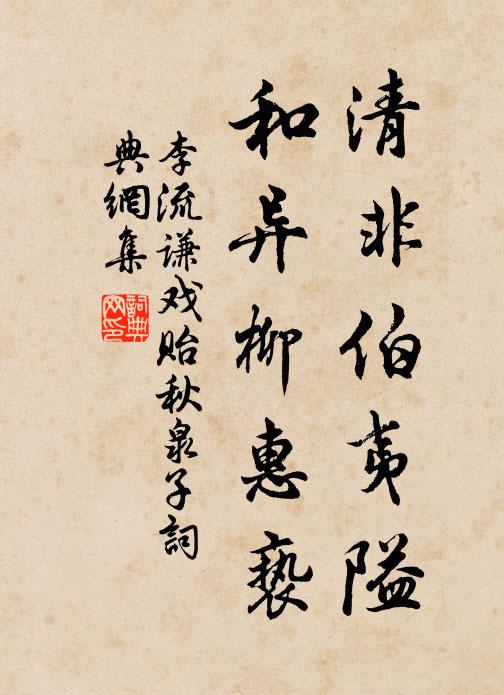 清非伯夷隘
和异柳惠亵
李流谦戏贻秋泉子詞
典網集
詞典
网印